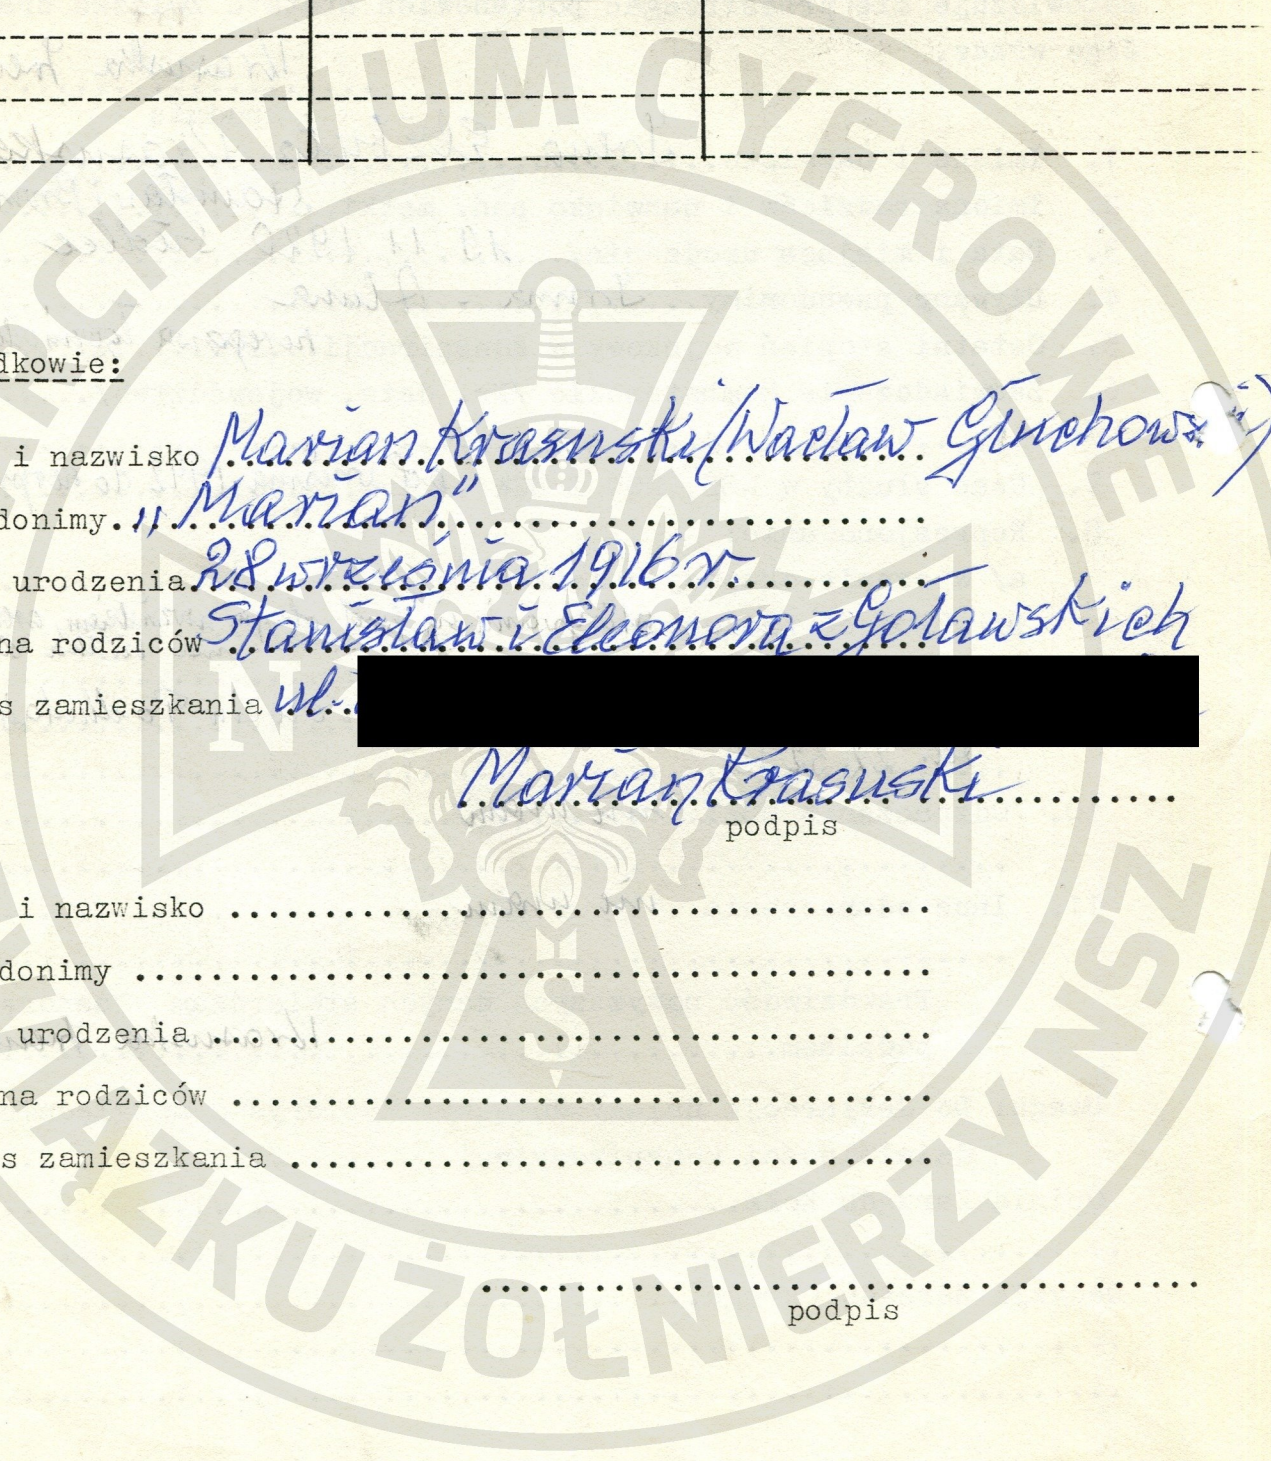 dkowie:
i nazwisko Marian Krasuski (Wacław Głuchowski)
donimy „Marian"
urodzenia 28 września 1916 r.
na rodziców Stanisław i Eleonora z Goławskich
s zamieszkania ul.
Marian Krasuski
podpis
i nazwisko
donimy
urodzenia
na rodziców
s zamieszkania
podpis
ARCHIWUM CYFROWE
ZWIĄZKU ŻOŁNIERZY NSZ
N
S